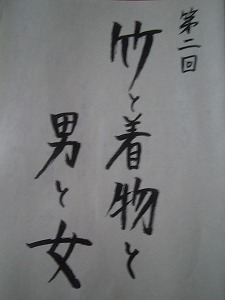 第二回
竹と着物と
男と女